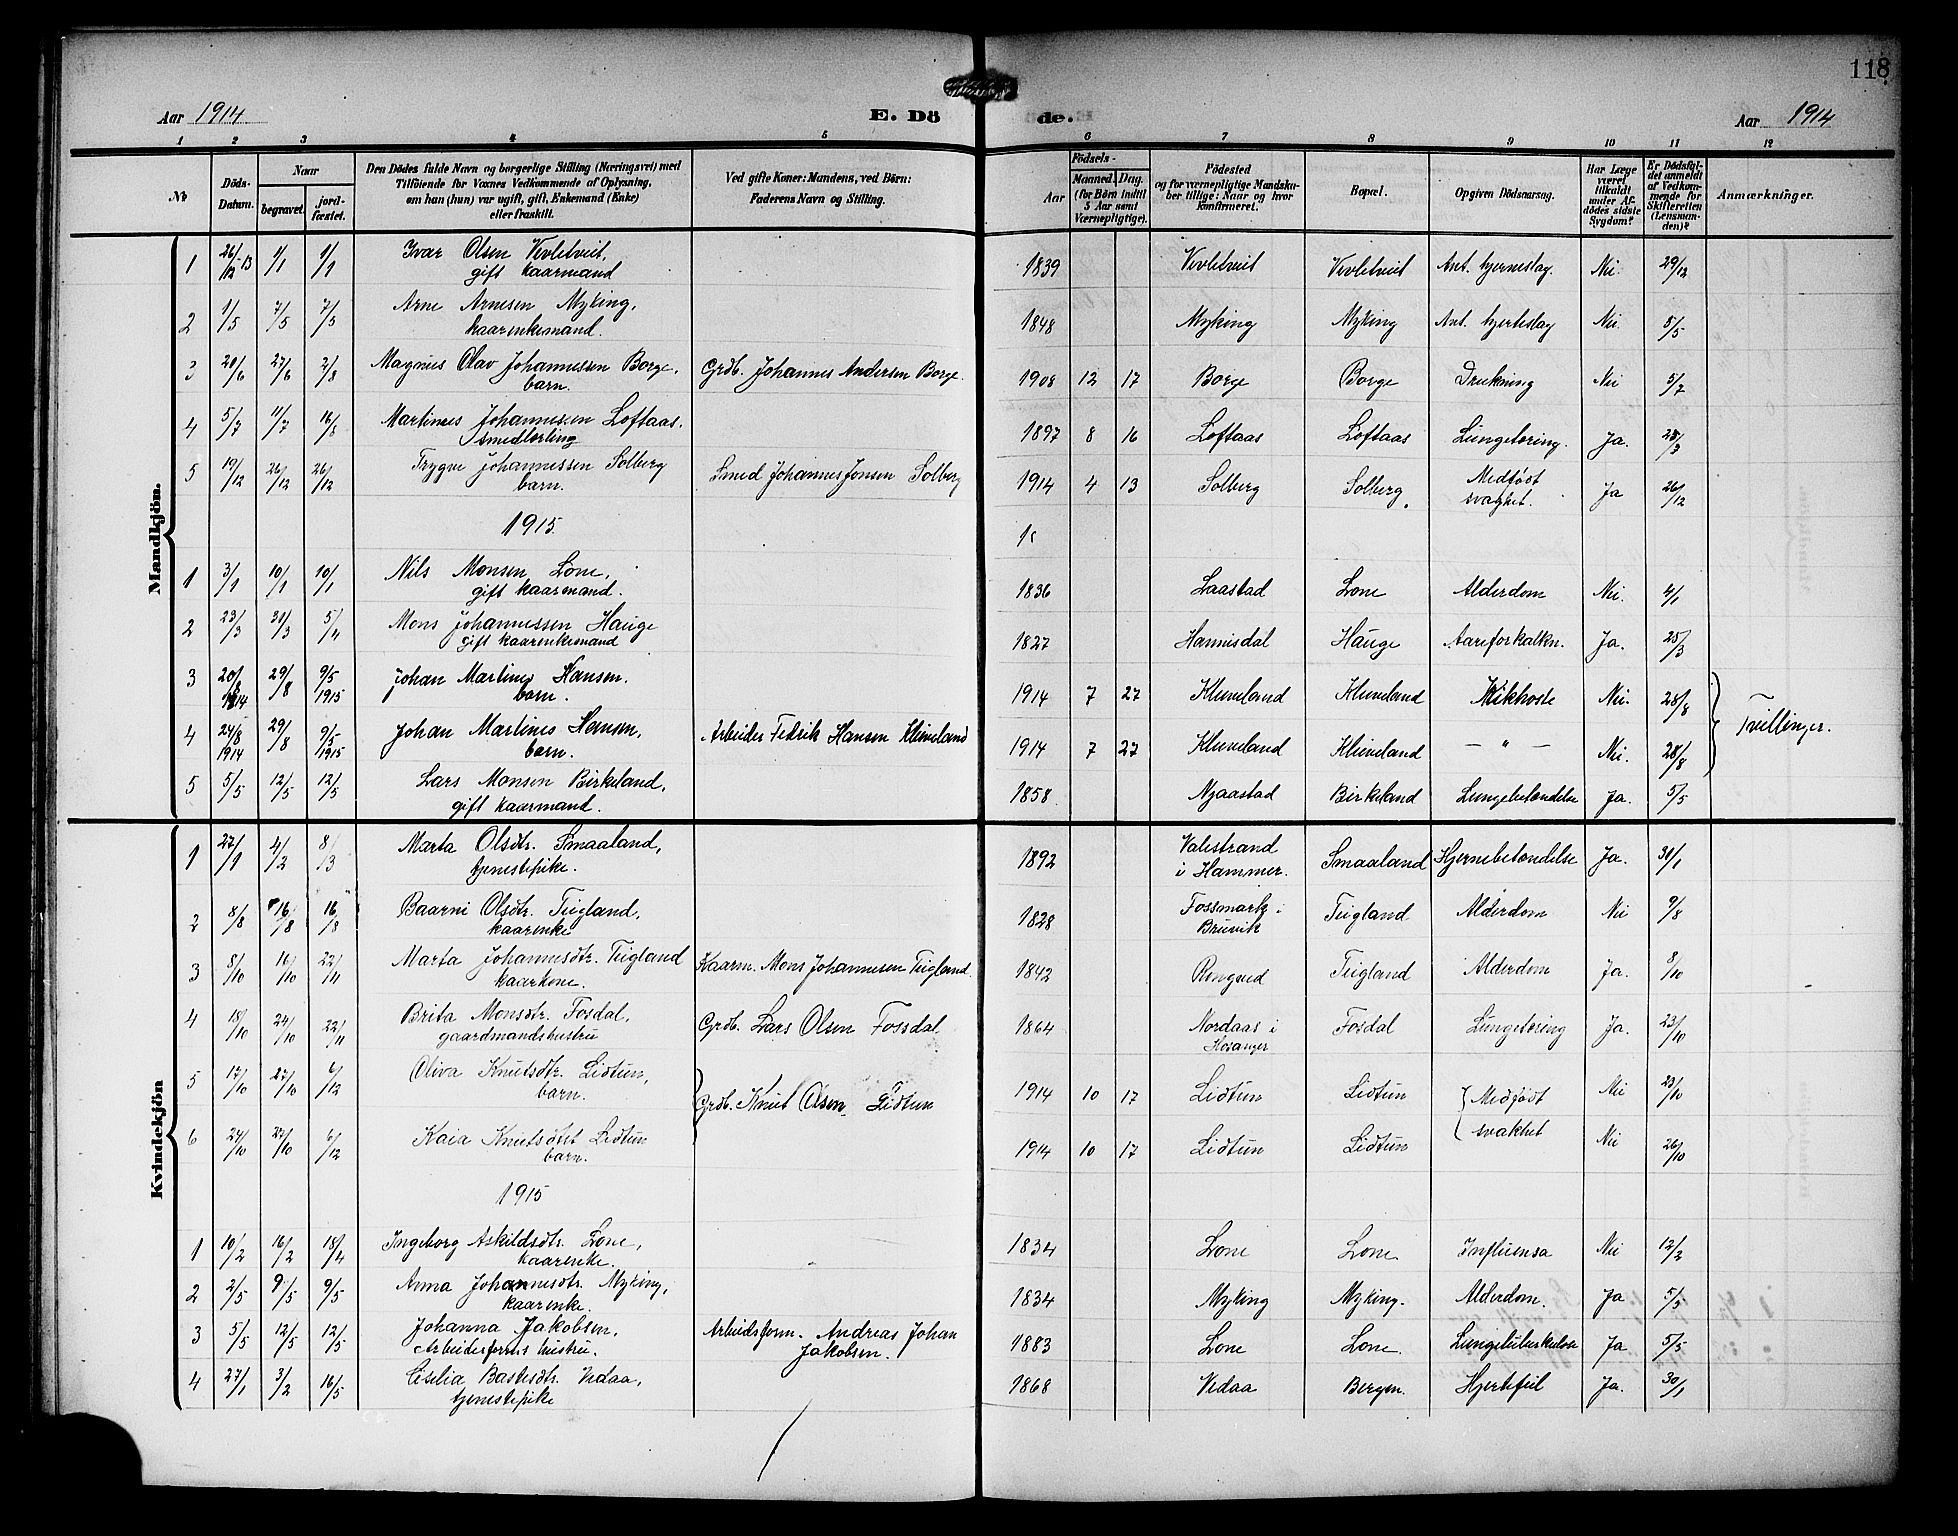 118
Aar 1914 E. Dö de. Aar 1914
1 2 3 4 5 6 7 8 9 10 11 12
No
Döds-Datum.
Naar
begravet.
jord-fæstet.
Den Dödes fulde Navn og borgerlige Stilling (Næringsvei) med
Tilföiende for Voxnes Vedkommende af Oplysning,
om han (hun) var ugift, gift, Enkemand (Enke)
eller fraskilt.
Ved gifte Koner: Mandens, ved Börn:
Faderens Navn og Stilling.
Födsels-
Aar
Maaned. Dag.
(for Börn indtil
5 Aar samt
Værnepligtige).
Födested
og for værnepligtige Mandska-
ber tillige: Naar og hvor
konfirmeret.
Bopæl.
Opgiven Dödsaarsag.
Har Læge
været
tilkaldt
under Af-
dödes sidste
Sygdom?
Er Dödsfal-
det anmeldt
af Vedkom-
mende for
Skifteretten
(Lensman-
den)?
Anmærkninger.
Mandkjön.
1 26/12-13 1/1 1/1 Ivar Olsen Vevletveit, 1839 Vevletveit Vevletveit Ant. hjerneslag Nei. 29/12
gift kaarmand
2 1/5 7/5 7/5 Arne Arnesen Myking, 1848 Myking Myking Ant. hjerteslag Nei. 5/5
kaarenkemand.
3 20/6 27/6 2/8 Magnus Olav Johannessen Borge, Grdb. Johannes Andersen Borge. 1908 12 17 Borge Borge Drukning Nei 5/7
barn.
4 5/7 11/7 16/8 Martines Johannessen Loftaas. 1897 8 16 Loftaas Loftaas Lungetæring. Ja.
smedlærling
5 19/12 26/12 26/12 Trygve Johannessen Solberg Smed Johannes Jonsen Solberg 1914 4 13 Solberg Solberg. Medfödt svaghet. Ja 26/12
barn.
1915.
1 3/1 10/1 10/1 Nils Monsen Lone, 1836 Laastad Lone Alderdom Nei. 4/1
gift kaarmand.
2 23/3 31/3 5/4 Mons Johannessen Hauge 1827 Hannisdal Hauge Aareforkalkn. Ja. 25/3
gift kaarenkemand
3 20/8 1914 29/8 9/5 1915 Johan Martines Hansen. 1914 7 27 Kleiveland Kleiveland Kikhoste Nei. 28/8 Tvillinger.
barn.
4 24/8 1914 29/8 9/5 1915 Johan Martines Hansen, Arbeider Fedrik Hansen Kleiveland 1914 7 27 Kleiveland Kleiveland — " — Nei. 28/8
barn.
5 5/5 12/5 12/5 Lars Monsen Birkeland, 1858. Njaastad Birkeland Lungebetændelse Ja. 5/5
gift kaarmand.
Kvindekjön
1 27/1 4/2 8/3 Marta Olsdtr. Smaaland, 1892 Valestrand i Hammer. Smaaland Hjernebetændelse Ja. 30/1
tjenestepike.
2 8/8 16/8 16/8 Baarni Olsdtr. Teigland, 1828 Fossmark i Bruvik Teigland Alderdom Nei 9/8
kaarenke
3 8/10 16/10 22/11 Marta Johannesdtr. Teigland Kaarm. Mons Johannesen Teigland. 1842 Ringsed Teigland Alderdom Ja. 8/10
kaarkone.
4 18/10 24/10 22/11 Brita Monsdtr. Fosdal, Grdb. Lars Olsen Fossdal 1864 Nordaas i Hosanger Fosdal Lungetæring Ja. 23/10
gaardmandshustru
5 17/10 27/10 6/12 Oliva Knutsdtr. Lidtun, Grdb. Knut Olsen Lidtun 1914 10 17 Lidtun Lidtun Medfödt svakhet Nei 23/10
barn.
6 24/10 27/10 6/12 Kaia Knutsdtr Lidtun 1914 10 17 Lidtun Lidtun Nei 26/10
barn.
1915
1 10/2 16/2 18/4 Ingeborg Askildsdtr. Lone, 1834 Lone Lone Influensa Nei 12/2
kaarenke.
2 2/5 9/5 9/5 Anna Johannesdtr. Myking, 1834 Myking Myking. Alderdom. Ja 5/5
kaarenke.
3 5/5 12/5 12/5 Johanna Jakobsen, Arbeidsform. Andreas Johan Jakobsen. 1883 Lone Lone Lungetuberkulose Ja 5/5
Arbeidsforms hustru.
4 27/1 3/2 16/5 Cecilia Bastesdtr. Vedaa, 1868 Vedaa Bergen. Hjertefeil Ja. 30/1
tjenestepike